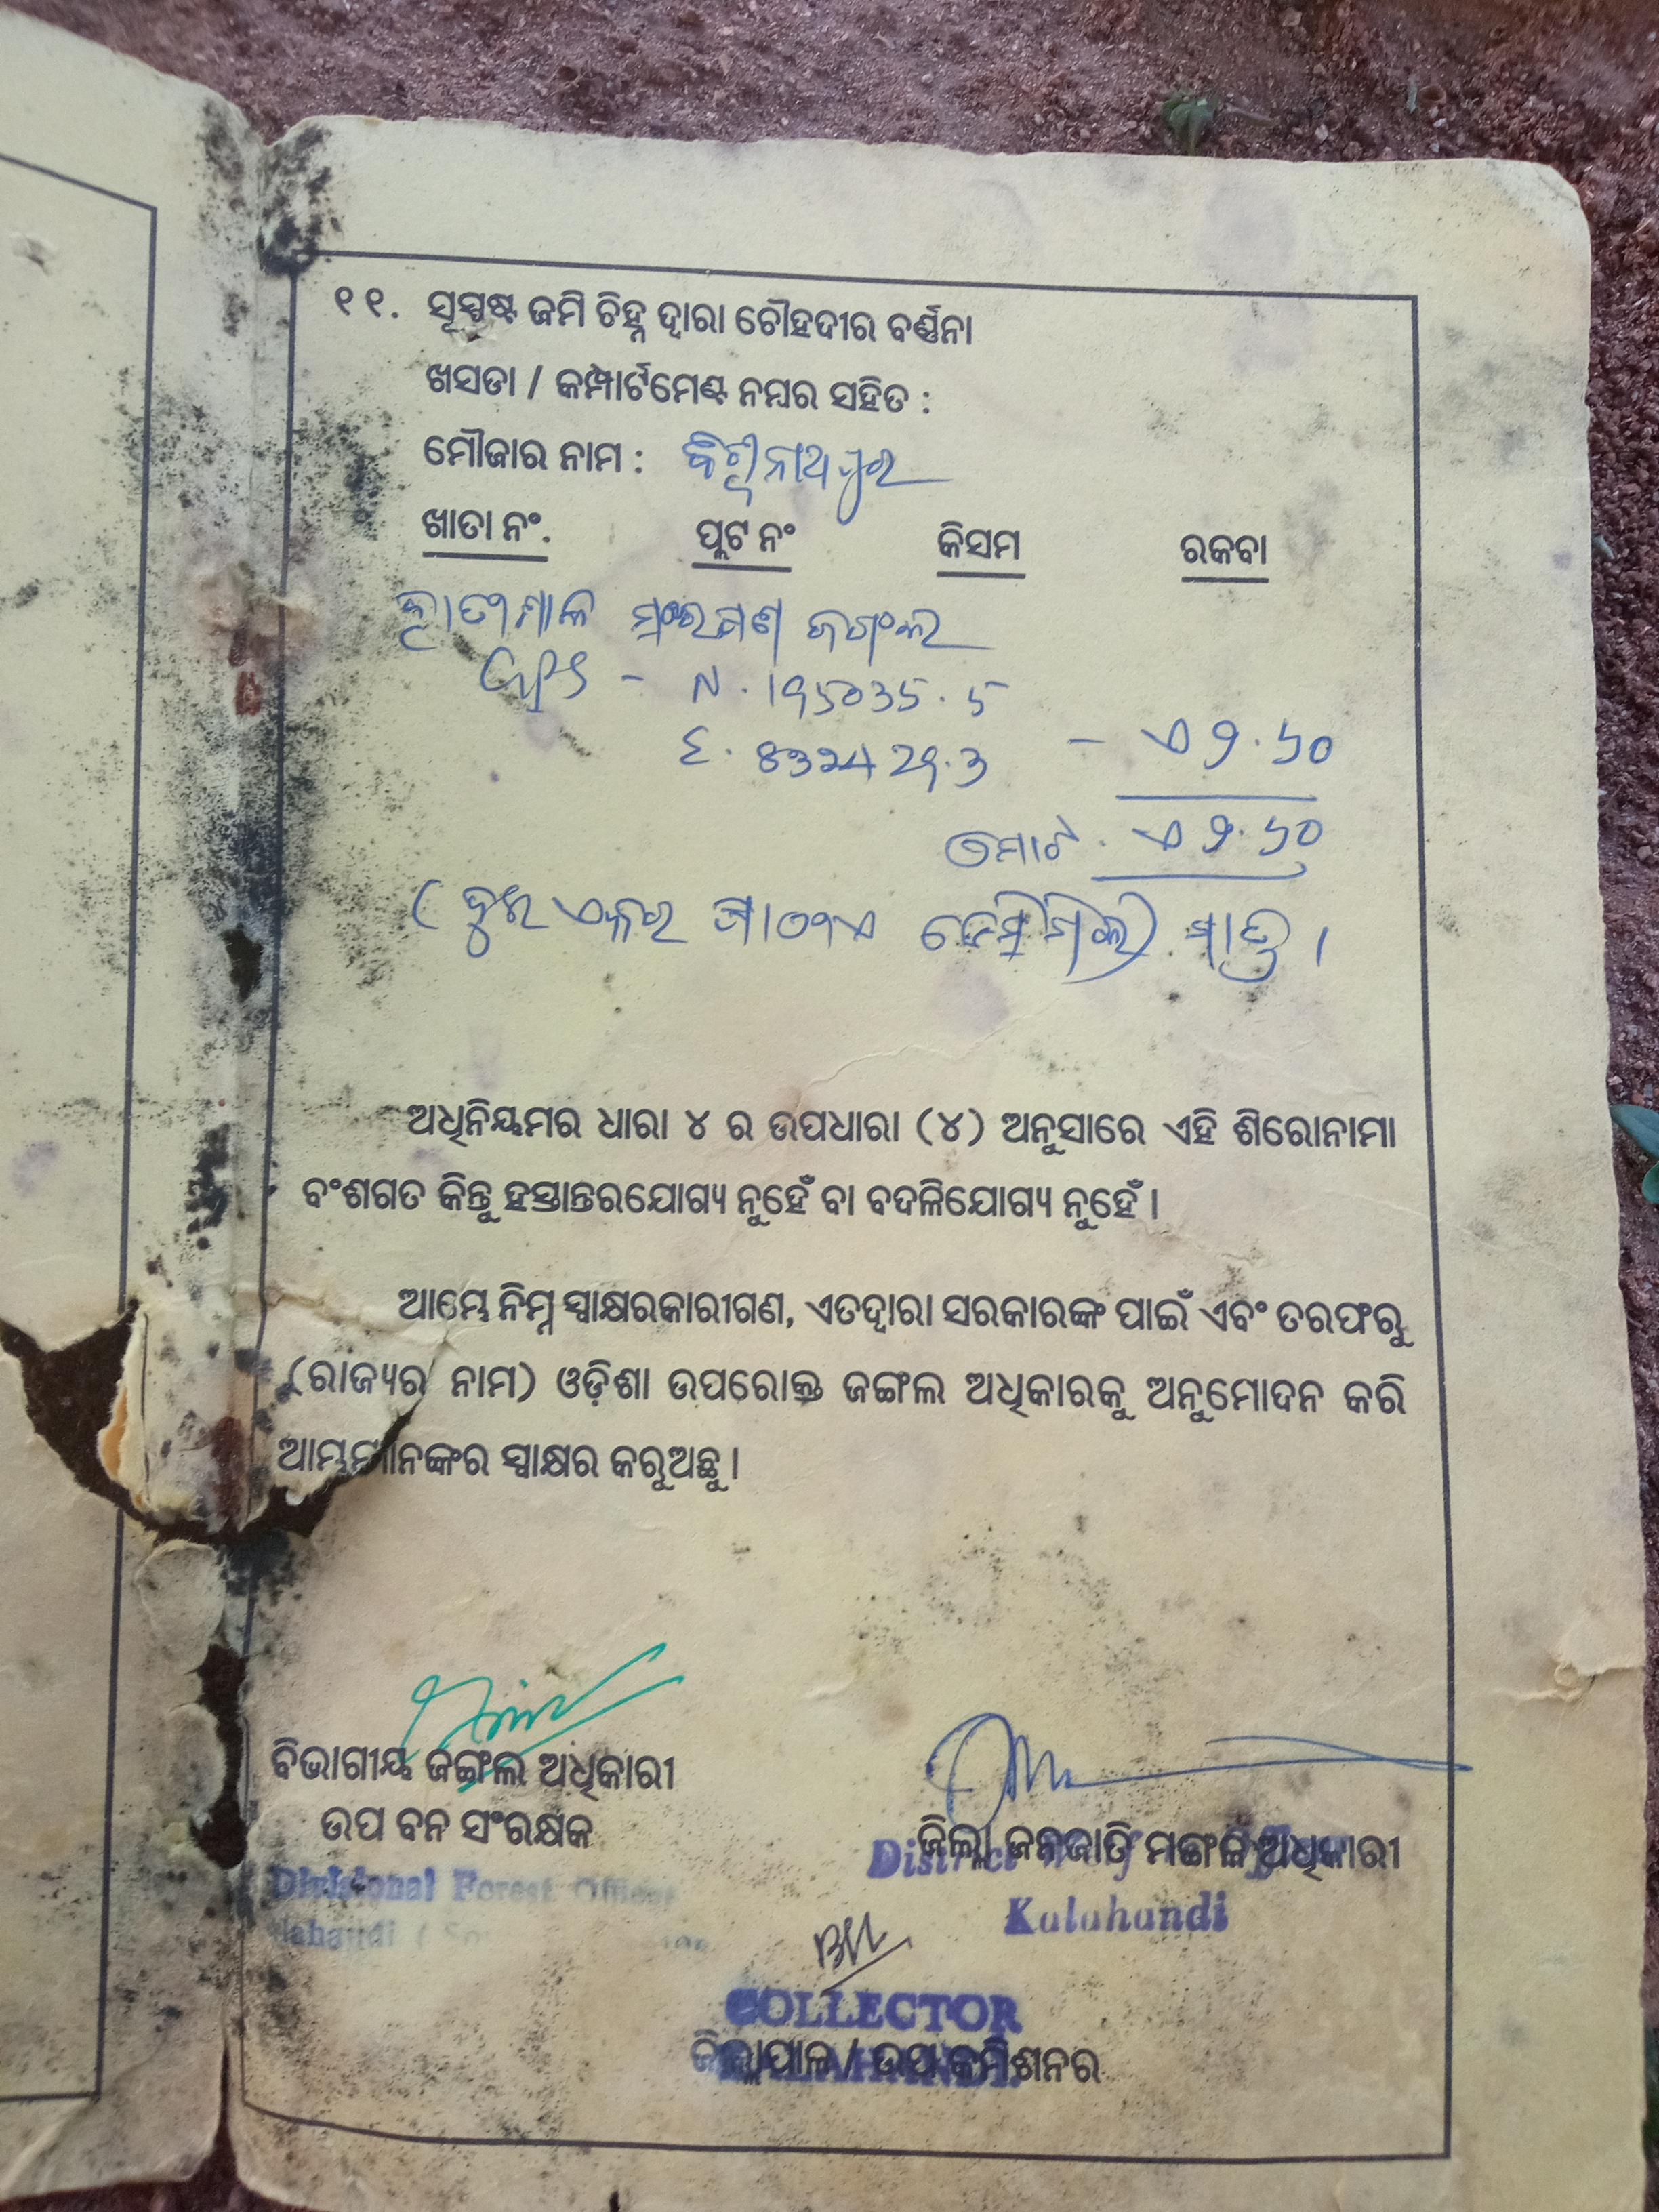 ୧୧. ସୂସ୍ପଷ୍ଟ ଜମି ଚିହ୍ନ ଦ୍ୱାରା ଚୌହଦୀର ବର୍ଣ୍ଣନା
ଖସଡା / କମ୍ପାର୍ଟମେଣ୍ଟ ନମ୍ବର ସହିତ :
ମୌଜାର ନାମ : ବିଶ୍ୱନାଥପୁର
ଖାତା ନଂ. ପ୍ଲଟ ନଂ କିସମ ରକବା
ଜଗଂଲ
GPS - N. 195035.5
E. 832429.3 - ଏ ୨.୬୦
ମୋଟ. ଏ ୨.୬୦
(ଦୁଇ ଏକର ଡେସିମିଲି ମାତ୍ର ।
ଅଧିନିୟମର ଧାରା ୪ ର ଉପଧାରା (୪) ଅନୁସାରେ ଏହି ଶିରୋନାମା
ବଂଶଗତ କିନ୍ତୁ ହସ୍ତାନ୍ତରଯୋଗ୍ୟ ନୁହେଁ ବା ବଦଳିଯୋଗ୍ୟ ନୁହେଁ ।
ଆମ୍ଭେ ନିମ୍ନ ସ୍ୱାକ୍ଷରକାରୀଗଣ, ଏତଦ୍ୱାରା ସରକାରଙ୍କ ପାଇଁ ଏବଂ ତରଫରୁ
(ରାଜ୍ୟର ନାମ) ଓଡ଼ିଶା ଉପରୋକ୍ତ ଜଙ୍ଗଲ ଅଧିକାରକୁ ଅନୁମୋଦନ କରି
ଆମ୍ଭମାନଙ୍କର ସ୍ୱାକ୍ଷର କରୁଅଛୁ ।
ବିଭାଗୀୟ ଜଙ୍ଗଲ ଅଧିକାରୀ
ଉପ ବନ ସଂରକ୍ଷକ
Divisional Forest Officer
ଜିଲ୍ଲା ଜନଜାତି ମଙ୍ଗଳ ଅଧିକାରୀ
District
Kalahandi
COLLECTOR
ଜିଲ୍ଲାପାଳ / ଉପ କମିଶନର